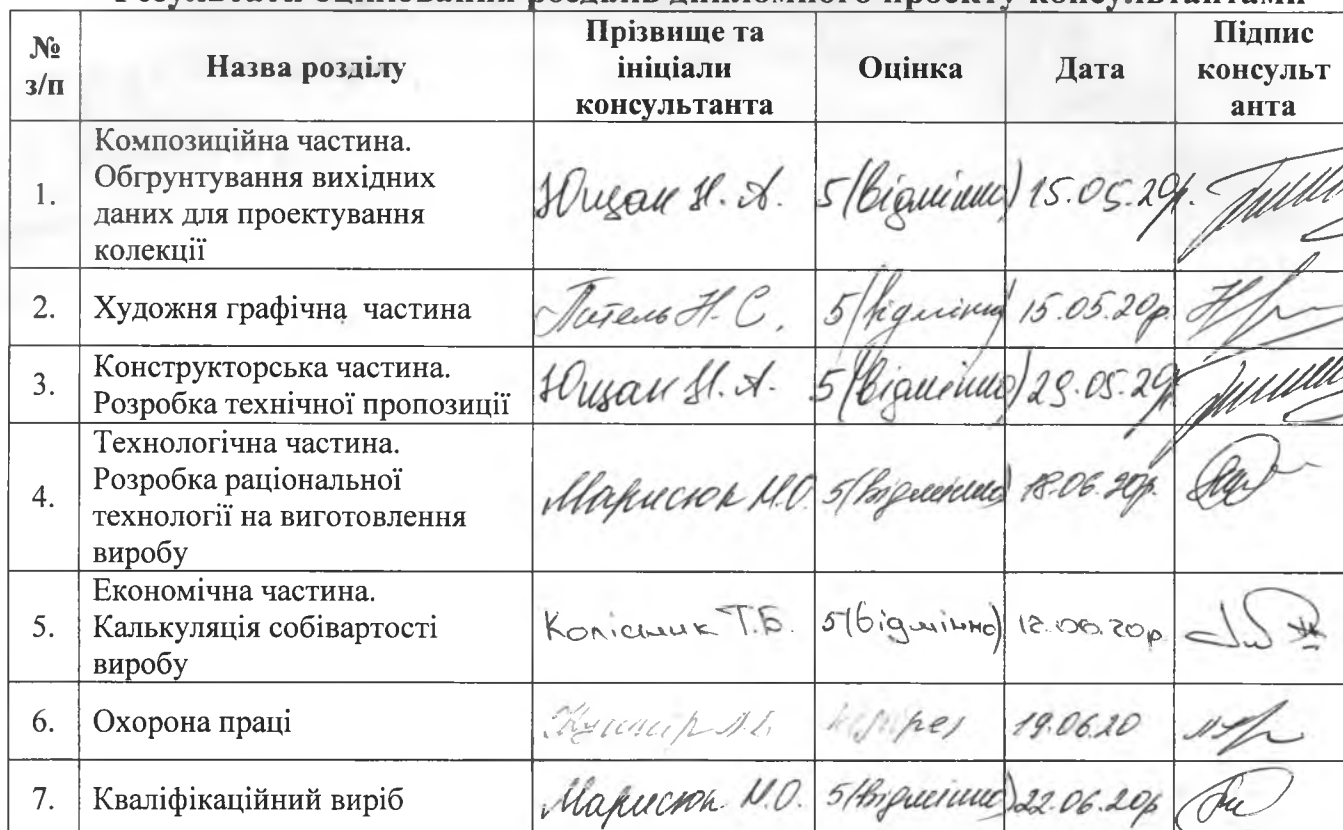 Результати оцінювання розділів дипломного проекту консультантами
№ з/п Назва розділу Прізвище та ініціали консультанта Оцінка Дата Підпис консульт анта
1. Композиційна частина.
Обгрунтування вихідних
даних для проектування
колекції
Ющак Н. А. 5 (відмінно) 15.05.20р.
2. Художня графічна частина Патель Н. С. 5 (відмінно) 15.05.20р
3. Конструкторська частина.
Розробка технічної пропозиції
Ющак Н. А. 5 (відмінно) 29.05.20р
4. Технологічна частина.
Розробка раціональної
технології на виготовлення
виробу
Марисюк М.О. 5 (відмінно) 18.06.20р.
5. Економічна частина.
Калькуляція собівартості
виробу
Колісник Т.Б. 5 (відмінно) 12.06.20р
6. Охорона праці 19.06.20
7. Кваліфікаційний виріб Марисюк М.О. 5 (відмінно) 22.06.20р